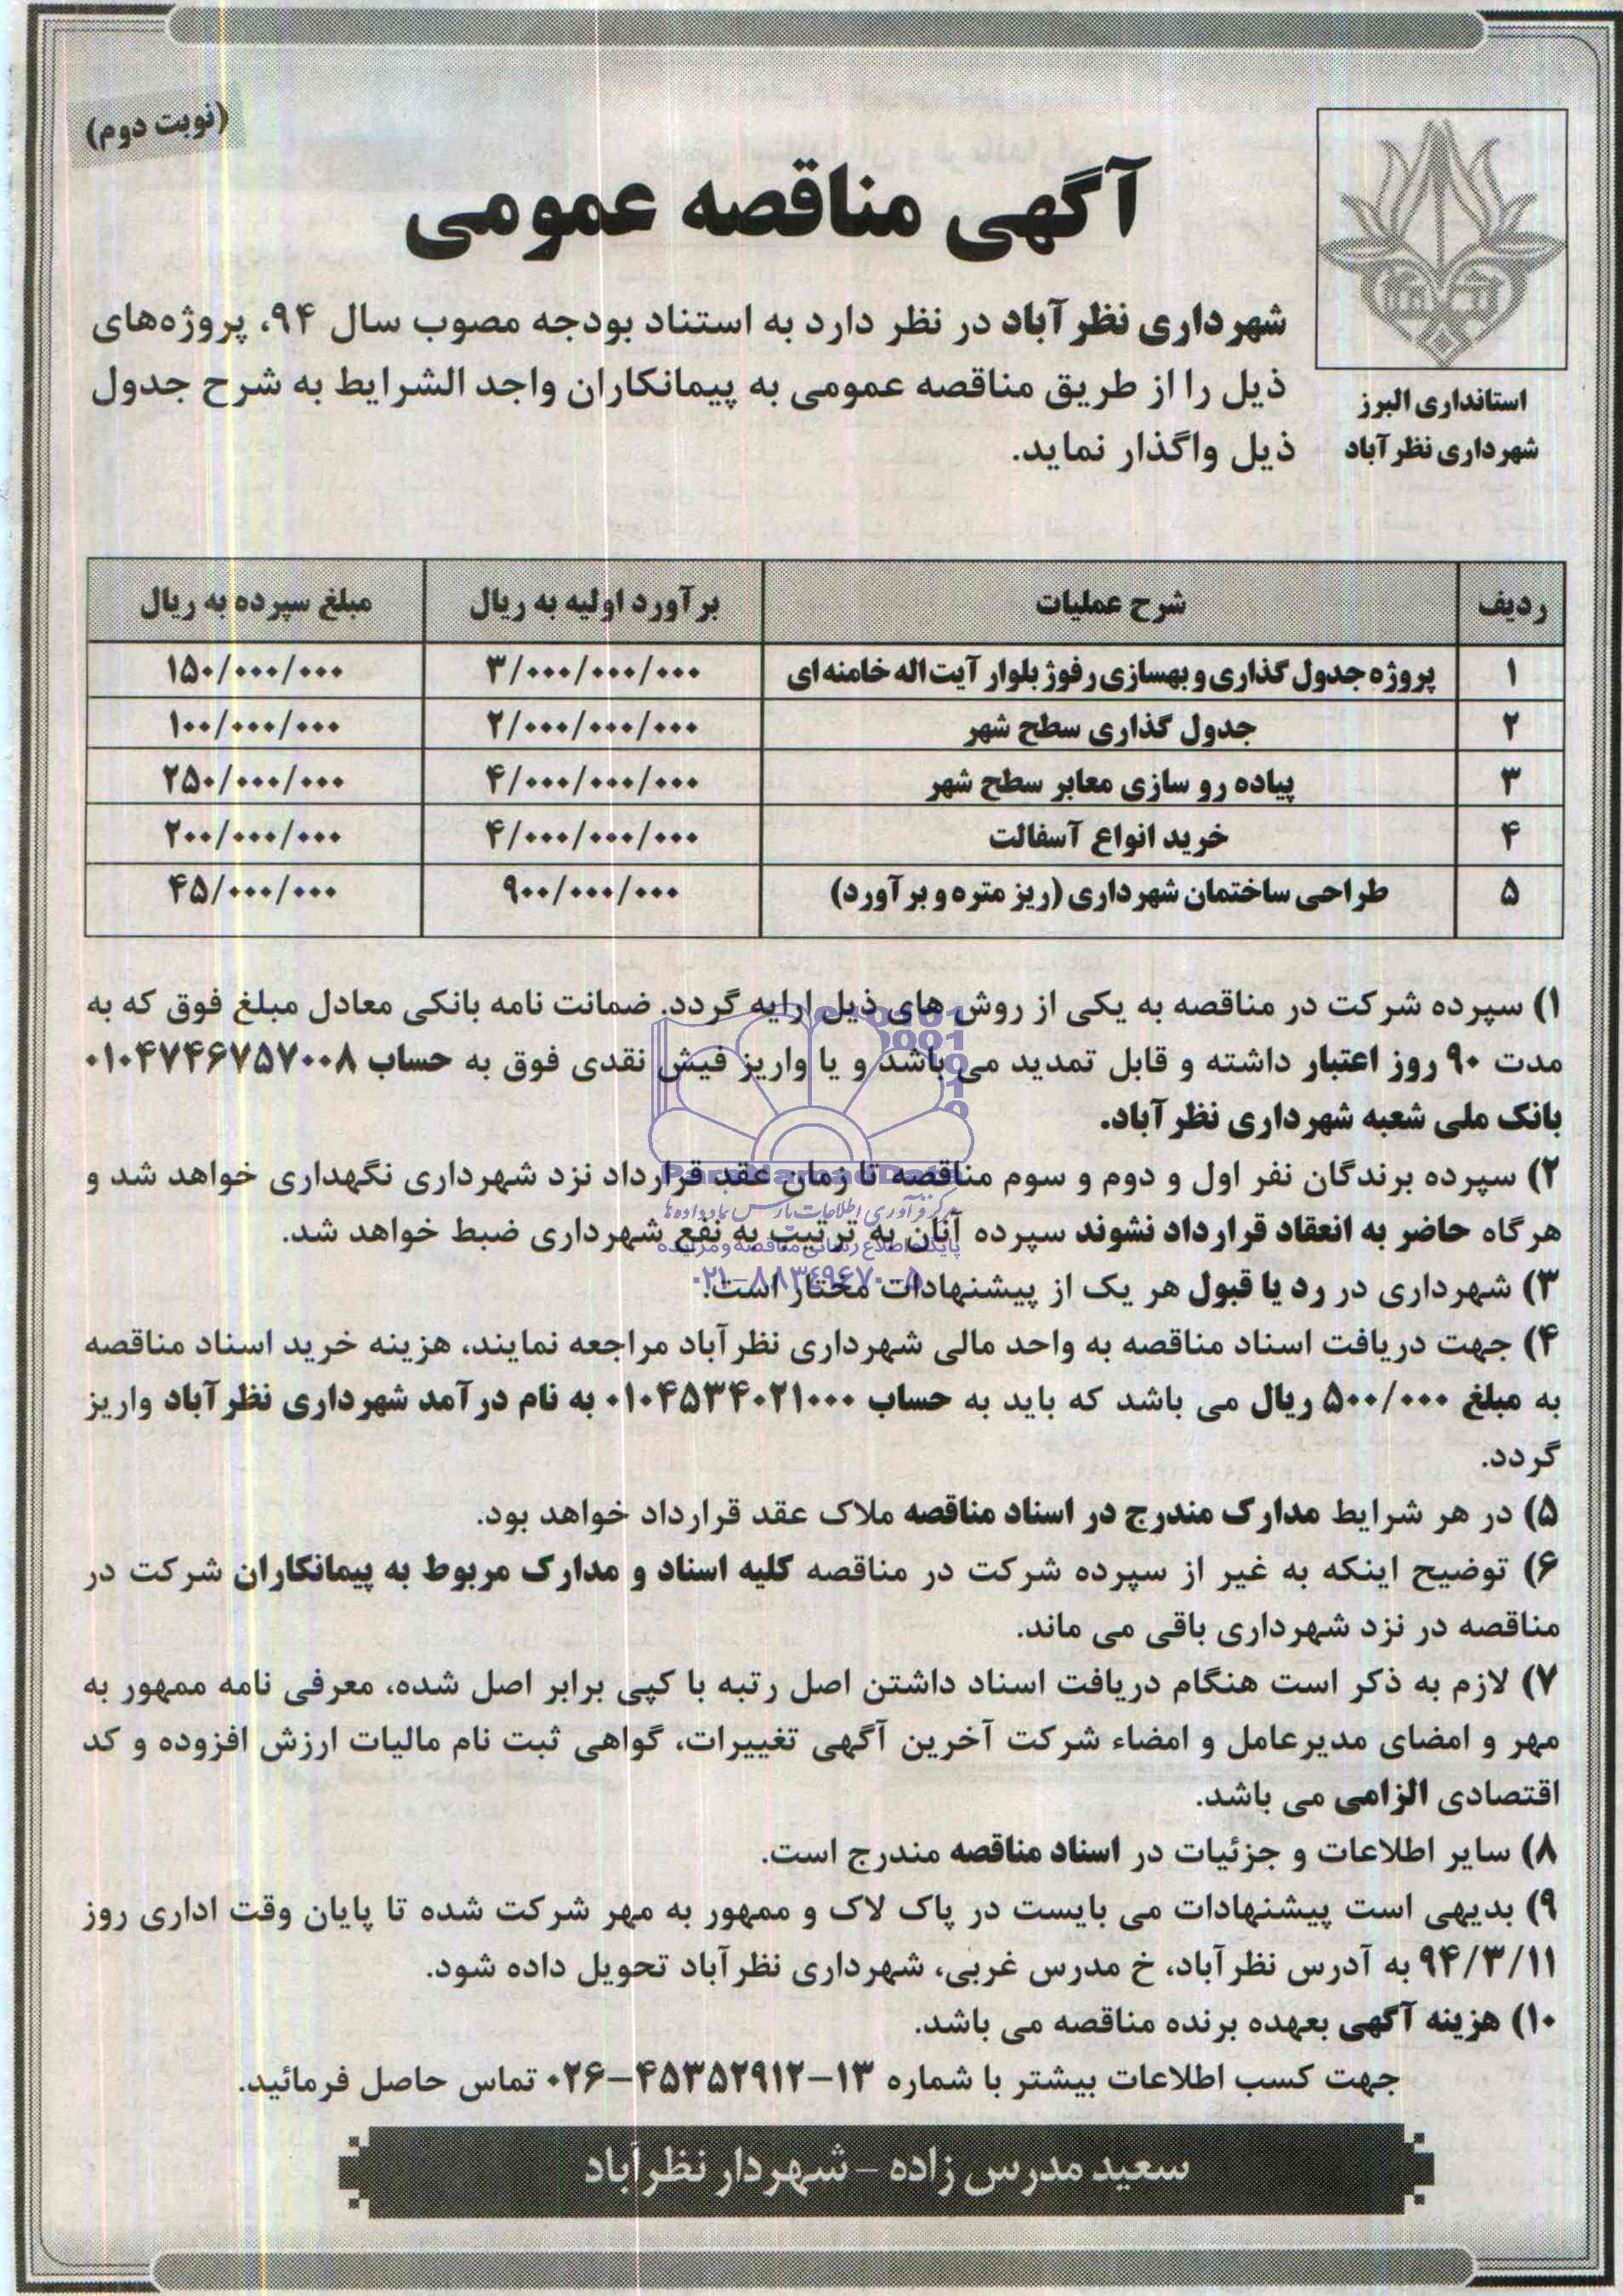 (نوبت دوم)
آگهی مناقصه عمومی
استانداری البرز
شهرداری نظرآباد
شهرداری نظرآباد در نظر دارد به استناد بودجه مصوب سال ۹۴، پروژه‌های
ذیل را از طریق مناقصه عمومی به پیمانکاران واجد الشرایط به شرح جدول
ذیل واگذار نماید.
ردیف شرح عملیات برآورد اولیه به ریال مبلغ سپرده به ریال
۱ پروژه جدول گذاری و بهسازی رفوژ بلوار آیت اله خامنه ای ۳/۰۰۰/۰۰۰/۰۰۰ ۱۵۰/۰۰۰/۰۰۰
۲ جدول گذاری سطح شهر ۲/۰۰۰/۰۰۰/۰۰۰ ۱۰۰/۰۰۰/۰۰۰
۳ پیاده رو سازی معابر سطح شهر ۴/۰۰۰/۰۰۰/۰۰۰ ۲۵۰/۰۰۰/۰۰۰
۴ خرید انواع آسفالت ۴/۰۰۰/۰۰۰/۰۰۰ ۲۰۰/۰۰۰/۰۰۰
۵ طراحی ساختمان شهرداری (ریز متره و برآورد) ۹۰۰/۰۰۰/۰۰۰ ۴۵/۰۰۰/۰۰۰
۱) سپرده شرکت در مناقصه به یکی از روش های ذیل ارایه گردد. ضمانت نامه بانکی معادل مبلغ فوق که به
مدت ۹۰ روز اعتبار داشته و قابل تمدید می باشد و یا واریز فیش نقدی فوق به حساب ۰۱۰۴۷۴۶۷۵۷۰۰۸
بانک ملی شعبه شهرداری نظرآباد.
۲) سپرده برندگان نفر اول و دوم و سوم مناقصه تا زمان عقد قرارداد نزد شهرداری نگهداری خواهد شد و
هرگاه حاضر به انعقاد قرارداد نشوند سپرده آنان به ترتیب به نفع شهرداری ضبط خواهد شد.
۳) شهرداری در رد یا قبول هر یک از پیشنهادات مختار است.
۴) جهت دریافت اسناد مناقصه به واحد مالی شهرداری نظرآباد مراجعه نمایند، هزینه خرید اسناد مناقصه
به مبلغ ۵۰۰/۰۰۰ ریال می باشد که باید به حساب ۰۱۰۴۵۳۴۰۲۱۰۰۰ به نام درآمد شهرداری نظرآباد واریز
گردد.
۵) در هر شرایط مدارک مندرج در اسناد مناقصه ملاک عقد قرارداد خواهد بود.
۶) توضیح اینکه به غیر از سپرده شرکت در مناقصه کلیه اسناد و مدارک مربوط به پیمانکاران شرکت در
مناقصه در نزد شهرداری باقی می ماند.
۷) لازم به ذکر است هنگام دریافت اسناد داشتن اصل رتبه با کپی برابر اصل شده، معرفی نامه ممهور به
مهر و امضای مدیرعامل و امضاء شرکت آخرین آگهی تغییرات، گواهی ثبت نام مالیات ارزش افزوده و کد
اقتصادی الزامی می باشد.
۸) سایر اطلاعات و جزئیات در اسناد مناقصه مندرج است.
۹) بدیهی است پیشنهادات می بایست در پاک لاک و ممهور به مهر شرکت شده تا پایان وقت اداری روز
۹۴/۳/۱۱ به آدرس نظرآباد، خ مدرس غربی، شهرداری نظرآباد تحویل داده شود.
۱۰) هزینه آگهی بعهده برنده مناقصه می باشد.
جهت کسب اطلاعات بیشتر با شماره ۱۳–۴۵۳۵۲۹۱۲–۰۲۶ تماس حاصل فرمائید.
سعید مدرس زاده – شهردار نظرآباد
ParsNamadData
مرکز فرآوری اطلاعات پارس نماد داده ها
پایگاه اطلاع رسانی مناقصه و مزایده
۰۲۱–۸۸۳۴۹۶۷۰–۵